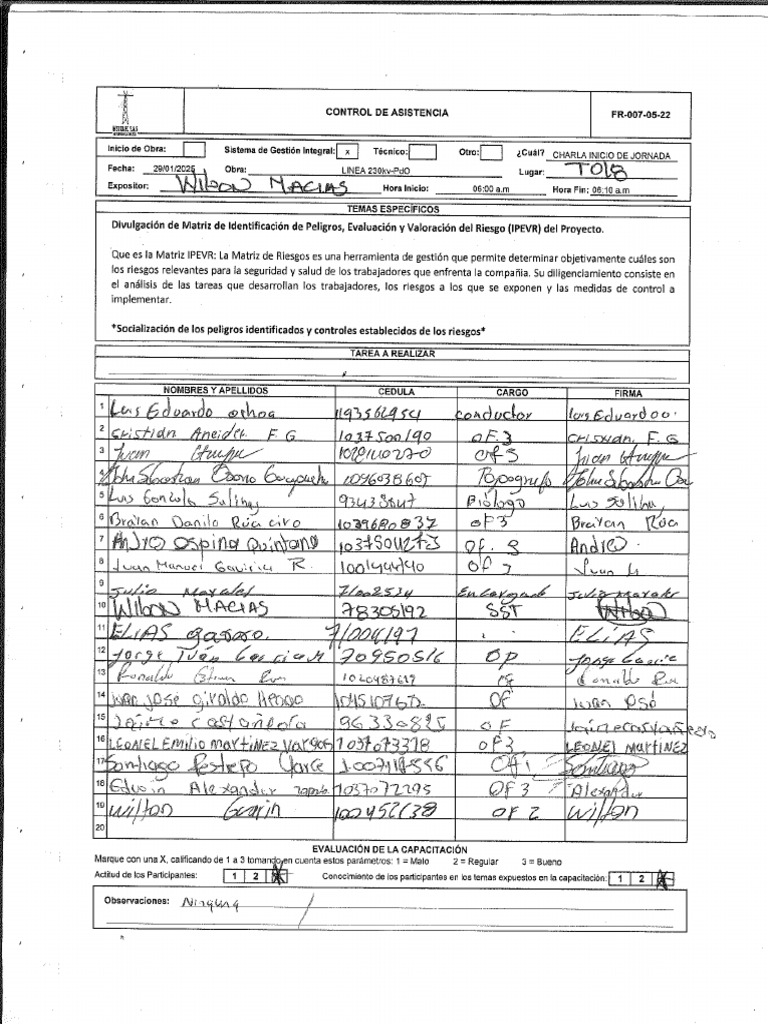 CONTROL DE ASISTENCIA
FR-007-05-22
Inicio de Obra: Sistema de Gestión Integral: x Técnico: Otro: ¿Cuál? CHARLA INICIO DE JORNADA
Fecha: 29/01/2025 Obra: LINEA 230kv-PdO Lugar: TO18
Expositor: Wilson MACIAS Hora Inicio: 06:00 a.m Hora Fin: 06:10 a.m
TEMAS ESPECÍFICOS
Divulgación de Matriz de Identificación de Peligros, Evaluación y Valoración del Riesgo (IPEVR) del Proyecto.
Que es la Matriz IPEVR: La Matriz de Riesgos es una herramienta de gestión que permite determinar objetivamente cuáles son
los riesgos relevantes para la seguridad y salud de los trabajadores que enfrenta la compañia. Su diligenciamiento consiste en
el análisis de las tareas que desarrollan los trabajadores, los riesgos a los que se exponen y las medidas de control a
implementar.
*Socialización de los peligros identificados y controles establecidos de los riesgos*
TAREA A REALIZAR
NOMBRES Y APELLIDOS CEDULA CARGO FIRMA
1 Luis Eduardo ochoa 1193566954 conductor luis Eduardo o.
2 Cristian Aneider F. G 1037500190 OF.3 Cristian, F. G
3 Juan Of 3 Juan
4 John Sebastian Osorio 1096038605 Topografo John Sebastian
5 Luis Gonzalo Salinas 93433647 Biólogo Luis Salinas
6 Braian Danilo Rúa ciro 1039680837 OF3 Braian Rúa
7 Andres Ospina Quintana OF. 3 Andres
8 Juan Manuel Gaviria R. 1001444140 Juan
9 Julio Morales 71002534 Encargado Julio Morales
10 Wilson MACIAS 78305192 SST Wilson
11 ELIAS 71004197 ELIAS
12 Jorge Iván Garcia 70950516 OP Jorge Garcia
13 Ronaldo
14 Juan José giraldo Henao OF Juan José
15 Jaime castañeda 96330825 OF Jaime castañeda
16 LEONEL Emilio Martinez Vargas 1037073378 OF3 LEONEL MARTINEZ
17 Santiago Restrepo OF1 Santiago
18 Edwin Alexander 1037072295 OF 3 Alexander
19 Wilton 100452138 OF 2 Wilton
20
EVALUACIÓN DE LA CAPACITACIÓN
Marque con una X, calificando de 1 a 3 tomando en cuenta estos parámetros: 1 = Malo 2 = Regular 3 = Bueno
Actitud de los Participantes: 1 2 Conocimiento de los participantes en los temas expuestos en la capacitación: 1 2
Observaciones: Ninguna